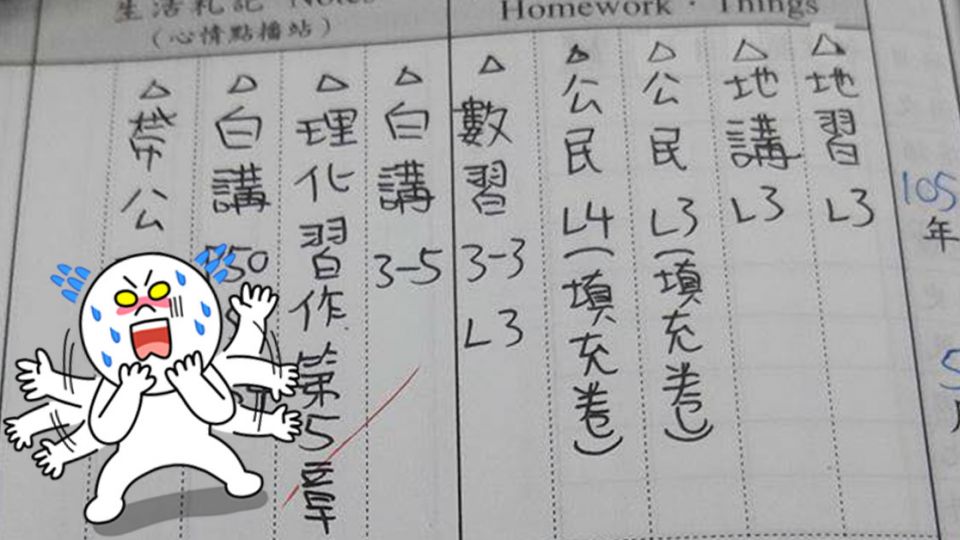 生活札記 Notes
（心情點播站）
Homework・Things
105
年
5
月
△地習 L3
△地講 L3
△公民 L3（填充卷）
△公民 L4（填充卷）
△數習 3-3 L3
△白講 3-5
△理化習作第5章
△白講 50
△帶公